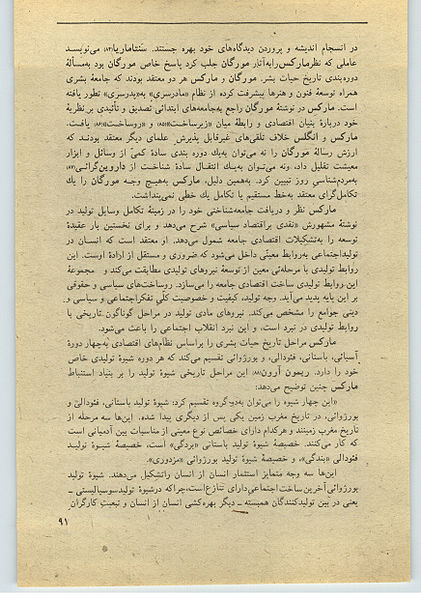 در انسجام اندیشه و پروردن دیدگاه‌های خود بهره جستند. سنتاماریا(۸۳) می‌نویسد
عاملی که نظر مارکس را به آثار مورگان جلب کرد پاسخ خاص مورگان بود به مسألهٔ
دوره‌بندی تاریخ حیات بشر. مورگان و مارکس هر دو معتقد بودند که جامعه بشری
همراه توسعهٔ فنون و هنرها پیشرفت کرده از نظام «مادرسری» به «پدرسری» تطور یافته
است. مارکس در نوشتهٔ مورگان راجع به جامعه‌های ابتدائی تصدیق و تأئیدی بر نظریهٔ
خود دربارهٔ بنیان اقتصادی و رابطه میان «زیرساخت»(۸۵) و «روساخت»(۸۶) یافت.
مارکس و انگلس خلاف تلقی‌های غیرقابل پذیرش علمای دیگر معتقد بودند که
ارزش رسالهٔ مورگان را نه می‌توان به یک دوره بندی سادهٔ کمی از وسائل و ابزار
معیشت تقلیل داد، ونه می‌توان به یک انتقال سادهٔ شناخت از داروین‌گرائی(۸۷)
به مردم‌شناسی روز تبیین کرد. به‌همین دلیل، مارکس به‌هیچ وجه مورگان را یک
تکامل‌گرای معتقد به خط مستقیم یا تکامل یک خطی نمی‌پنداشت.
مارکس نظر و دریافت جامعه‌شناختی خود را در زمینهٔ تکامل وسایل تولید در
نوشتهٔ مشهورش «نقدی براقتصاد سیاسی» شرح می‌دهد و برای نخستین بار عقیدهٔ
توسعه را به‌تشکیلات اقتصادی جامعه شمول می‌دهد. او معتقد است که انسان در
تولید اجتماعی به روابط معینی داخل می‌شود که ضروری و مستقل از ارادهٔ اوست. این
روابط تولیدی با مرحله‌ئی معین از توسعهٔ نیروهای تولیدی مطابقت می‌کند و مجموعهٔ
این روابط تولیدی ساخت اقتصادی جامعه را می‌سازد. روساخت‌های سیاسی و حقوقی
بر این پایه پدید می‌آید. وجه تولید، کیفیت و خصوصیت کلّی تفکر اجتماعی و سیاسی و
دینی جوامع را مشخص می‌کند. نیروهای مادی تولید در مراحل گوناگون تاریخی با
روابط تولیدی در نبرد است، و این نبرد انقلاب اجتماعی را باعث می‌شود.
مارکس مراحل تاریخ حیات بشری را براساس نظام‌های اقتصادی به چهار دورهٔ
آسیائی، باستانی، فئودالی، و بورژوائی تقسیم می‌کند که هر دوره شیوهٔ تولیدی خاص
خود را دارد. ریمون آرون(۸۸) این مراحل تاریخی شیوهٔ تولید را بر بنیاد استنباط
مارکس چنین توضیح می‌دهد:
«این چهار شیوه را می‌توان به‌دوگروه تقسیم کرد: شیوهٔ تولید باستانی، فئودالی و
بورژوائی، در تاریخ مغرب زمین یکی پس از دیگری پیدا شده. این‌ها سه مرحله از
تاریخ مغرب زمینند و هرکدام دارای خصائص نوع معینی از مناسبات بین آدمیانی است
که کار می‌کنند. خصیصهٔ شیوهٔ تولید باستانی «بردگی» است، خصیصهٔ شیوهٔ تولید
فئودالی «بندگی»، و خصیصهٔ شیوهٔ تولید بورژوائی «مزدوری».
این‌ها سه وجه متمایز استثمار انسان از انسان راتشکیل می‌دهند. شیوهٔ تولید
بورژوائی آخرین ساخت اجتماعی دارای تنازع است، چراکه درشیوهٔ تولیدسوسیالیستی ـ
یعنی در بین تولیدکنندگان همبسته ـ دیگر بهره‌کشی انسان از انسان و تبعیت کارگران
۹۱